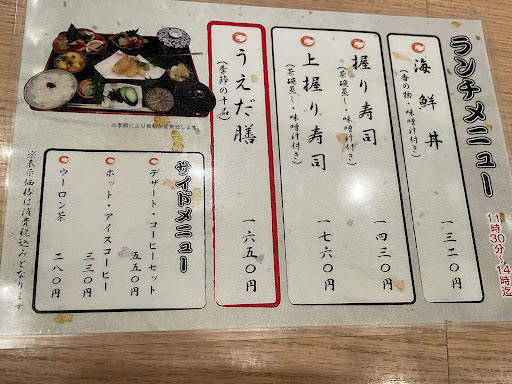 ランチメニュー
11時30分~14時迄
海鮮丼
(香の物・味噌汁付き)
一三二〇円
握り寿司
(茶碗蒸し・味噌汁付き)
一四三〇円
上握り寿司
(茶碗蒸し・味噌汁付き)
一七六〇円
うえだ膳
(季節の十品)
一六五〇円
※季節により食材が変更致します
サイドメニュー
デザート・コーヒーセット
五五〇円
ホット・アイスコーヒー
三三〇円
ウーロン茶
二八〇円
※表示価格は消費税込みとなります。